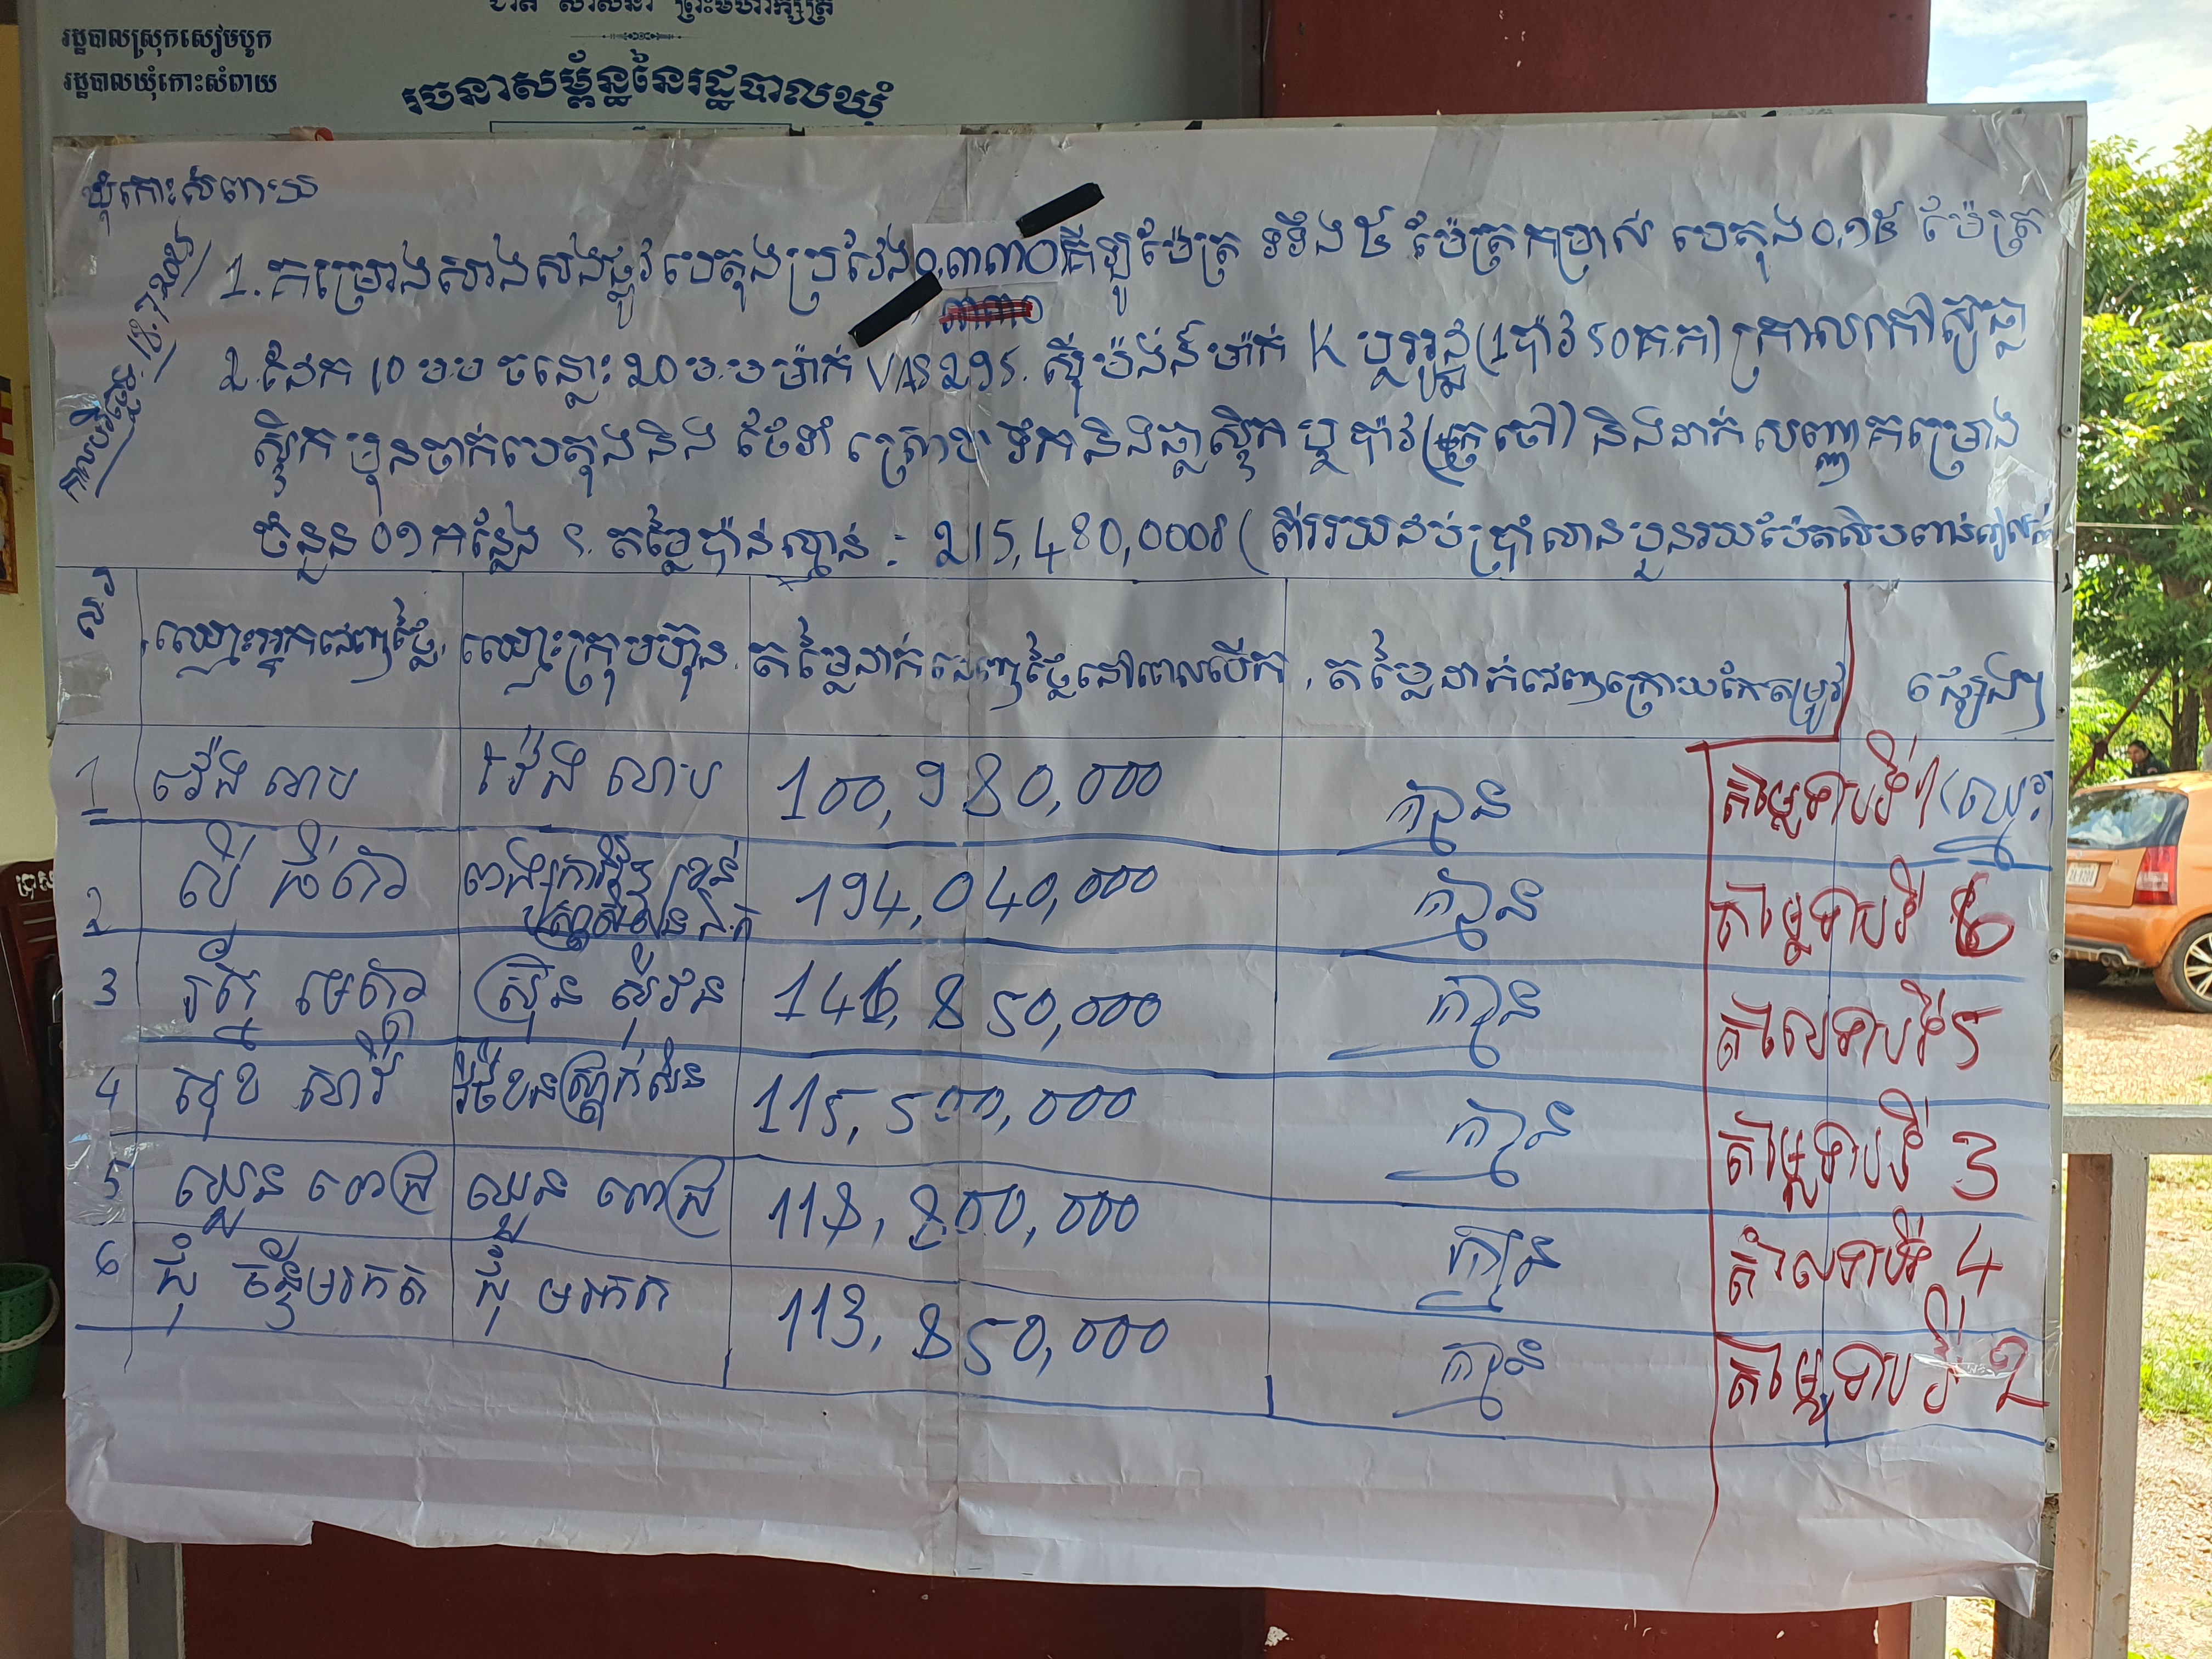 ជាតិ សាសនា ព្រះមហាក្សត្រ
រដ្ឋបាលស្រុកសៀមបូក
រដ្ឋបាលឃុំកោះសំពាយ
រចនាសម្ព័ន្ធនៃរដ្ឋបាលឃុំ
ឃុំកោះសំពាយ
1. គម្រោងសាងសង់ផ្លូវបេតុងប្រវែង០,៣៣០គីឡូម៉ែត្រ ទទឹង៥ ម៉ែត្រកម្រាស់ បេតុង០,១៥ ម៉ែត្រ
៣៣០
2. ដែក 10 ម.ម ចន្លោះ 20 ម.ម ម៉ាក់ VAS 295. ស៊ីម៉ង់ត៍ម៉ាក់ K (1ប៉ាវ 50គ.ក) ក្រាលកៅស៊ូផ្លា
ស្ទិក មុនចាក់បេតុងនិង ថែទាំ ស្រោច ទឹកនិងផ្លាស្ទិក ឬ ប៉ាវ និងដាក់ សញ្ញាគម្រោង
ចំនួន ០១ កន្លែង ។ តម្លៃប៉ាន់ស្មាន : 215,480,000៛ ( ពីររយដប់ប្រាំលានបួនរយប៉ែតសិបពាន់រៀលគត់
ល.រ ឈ្មោះអ្នកដេញថ្លៃ ឈ្មោះក្រុមហ៊ុន តម្លៃដាក់ដេញថ្លៃនៅពេលបើក តម្លៃដាក់ដេញក្រោយកែតម្រូវ ផ្សេងៗ
1 វ៉េង សាប វ៉េង សាប 100,980,000 គ្មាន តម្លៃទាបទី1 (ឈ្នះ)
2 លី ឆីតាវ 194,040,000 គ្មាន តម្លៃទាបទី 6
3 រ័ត្ន មេត្តា ស្រ៊ុន ស៊ីវន 146,850,000 គ្មាន តម្លៃទាបទី 5
4 សុខ សាវី 115,500,000 គ្មាន តម្លៃទាបទី 3
5 ឈួន ពេជ្រ ឈួន ពេជ្រ 118,800,000 គ្មាន តម្លៃទាបទី 4
6 ជុំ ច័ន្ទមរកត ជុំ មរកត 113,850,000 គ្មាន តម្លៃទាបទី 2